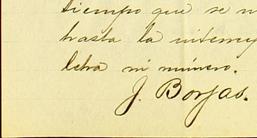 tiempo que se
hasta la
letra ni número.
J. Borjas.